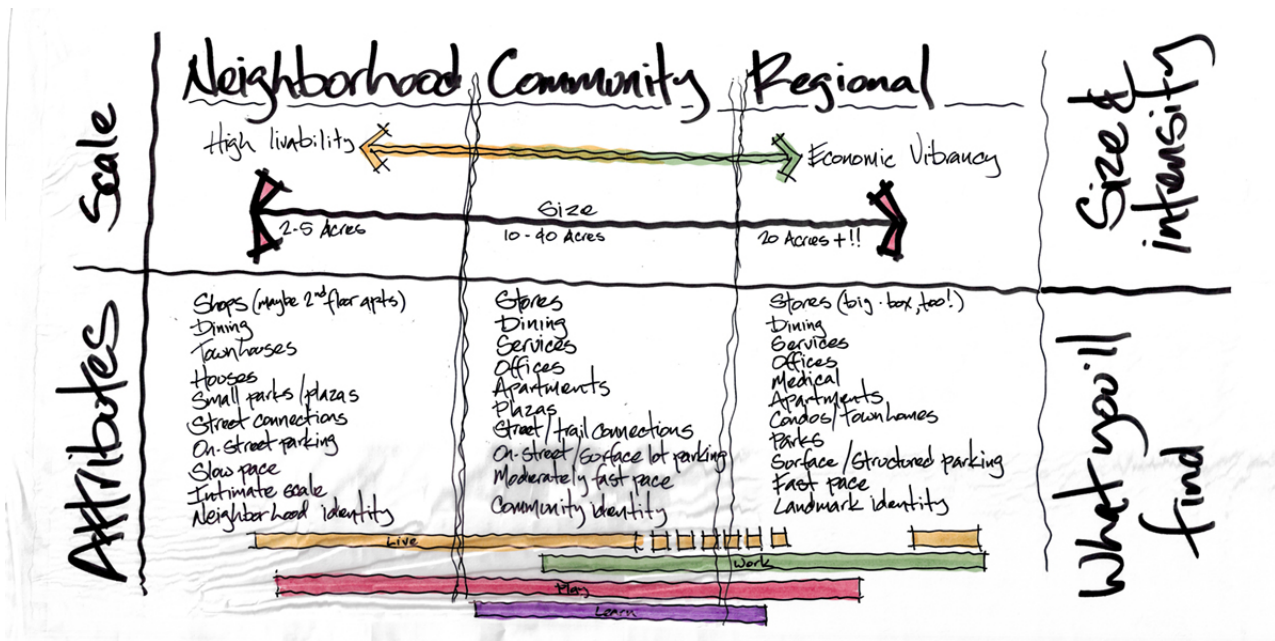 Neighborhood
Community
Regional
Scale
High livability
Economic Vibrancy
Size
2-5 Acres
10-40 Acres
20 Acres+!!
Size &
intensity
Attributes
Shops (maybe 2nd floor apts)
Dining
Townhouses
Houses
Small parks/plazas
Street connections
On-Street parking
Slow pace
Intimate scale
Neighborhood identity
Stores
Dining
Services
Offices
Apartments
Plazas
Street/trail connections
On-street/surface lot parking
Moderately fast pace
Community identity
Stores (big-box, too!)
Dining
Services
Offices
Medical
Apartments
Condos/townhomes
Parks
Surface/Structured parking
Fast pace
Landmark identity
What you'll
find
Live
Work
Play
Learn